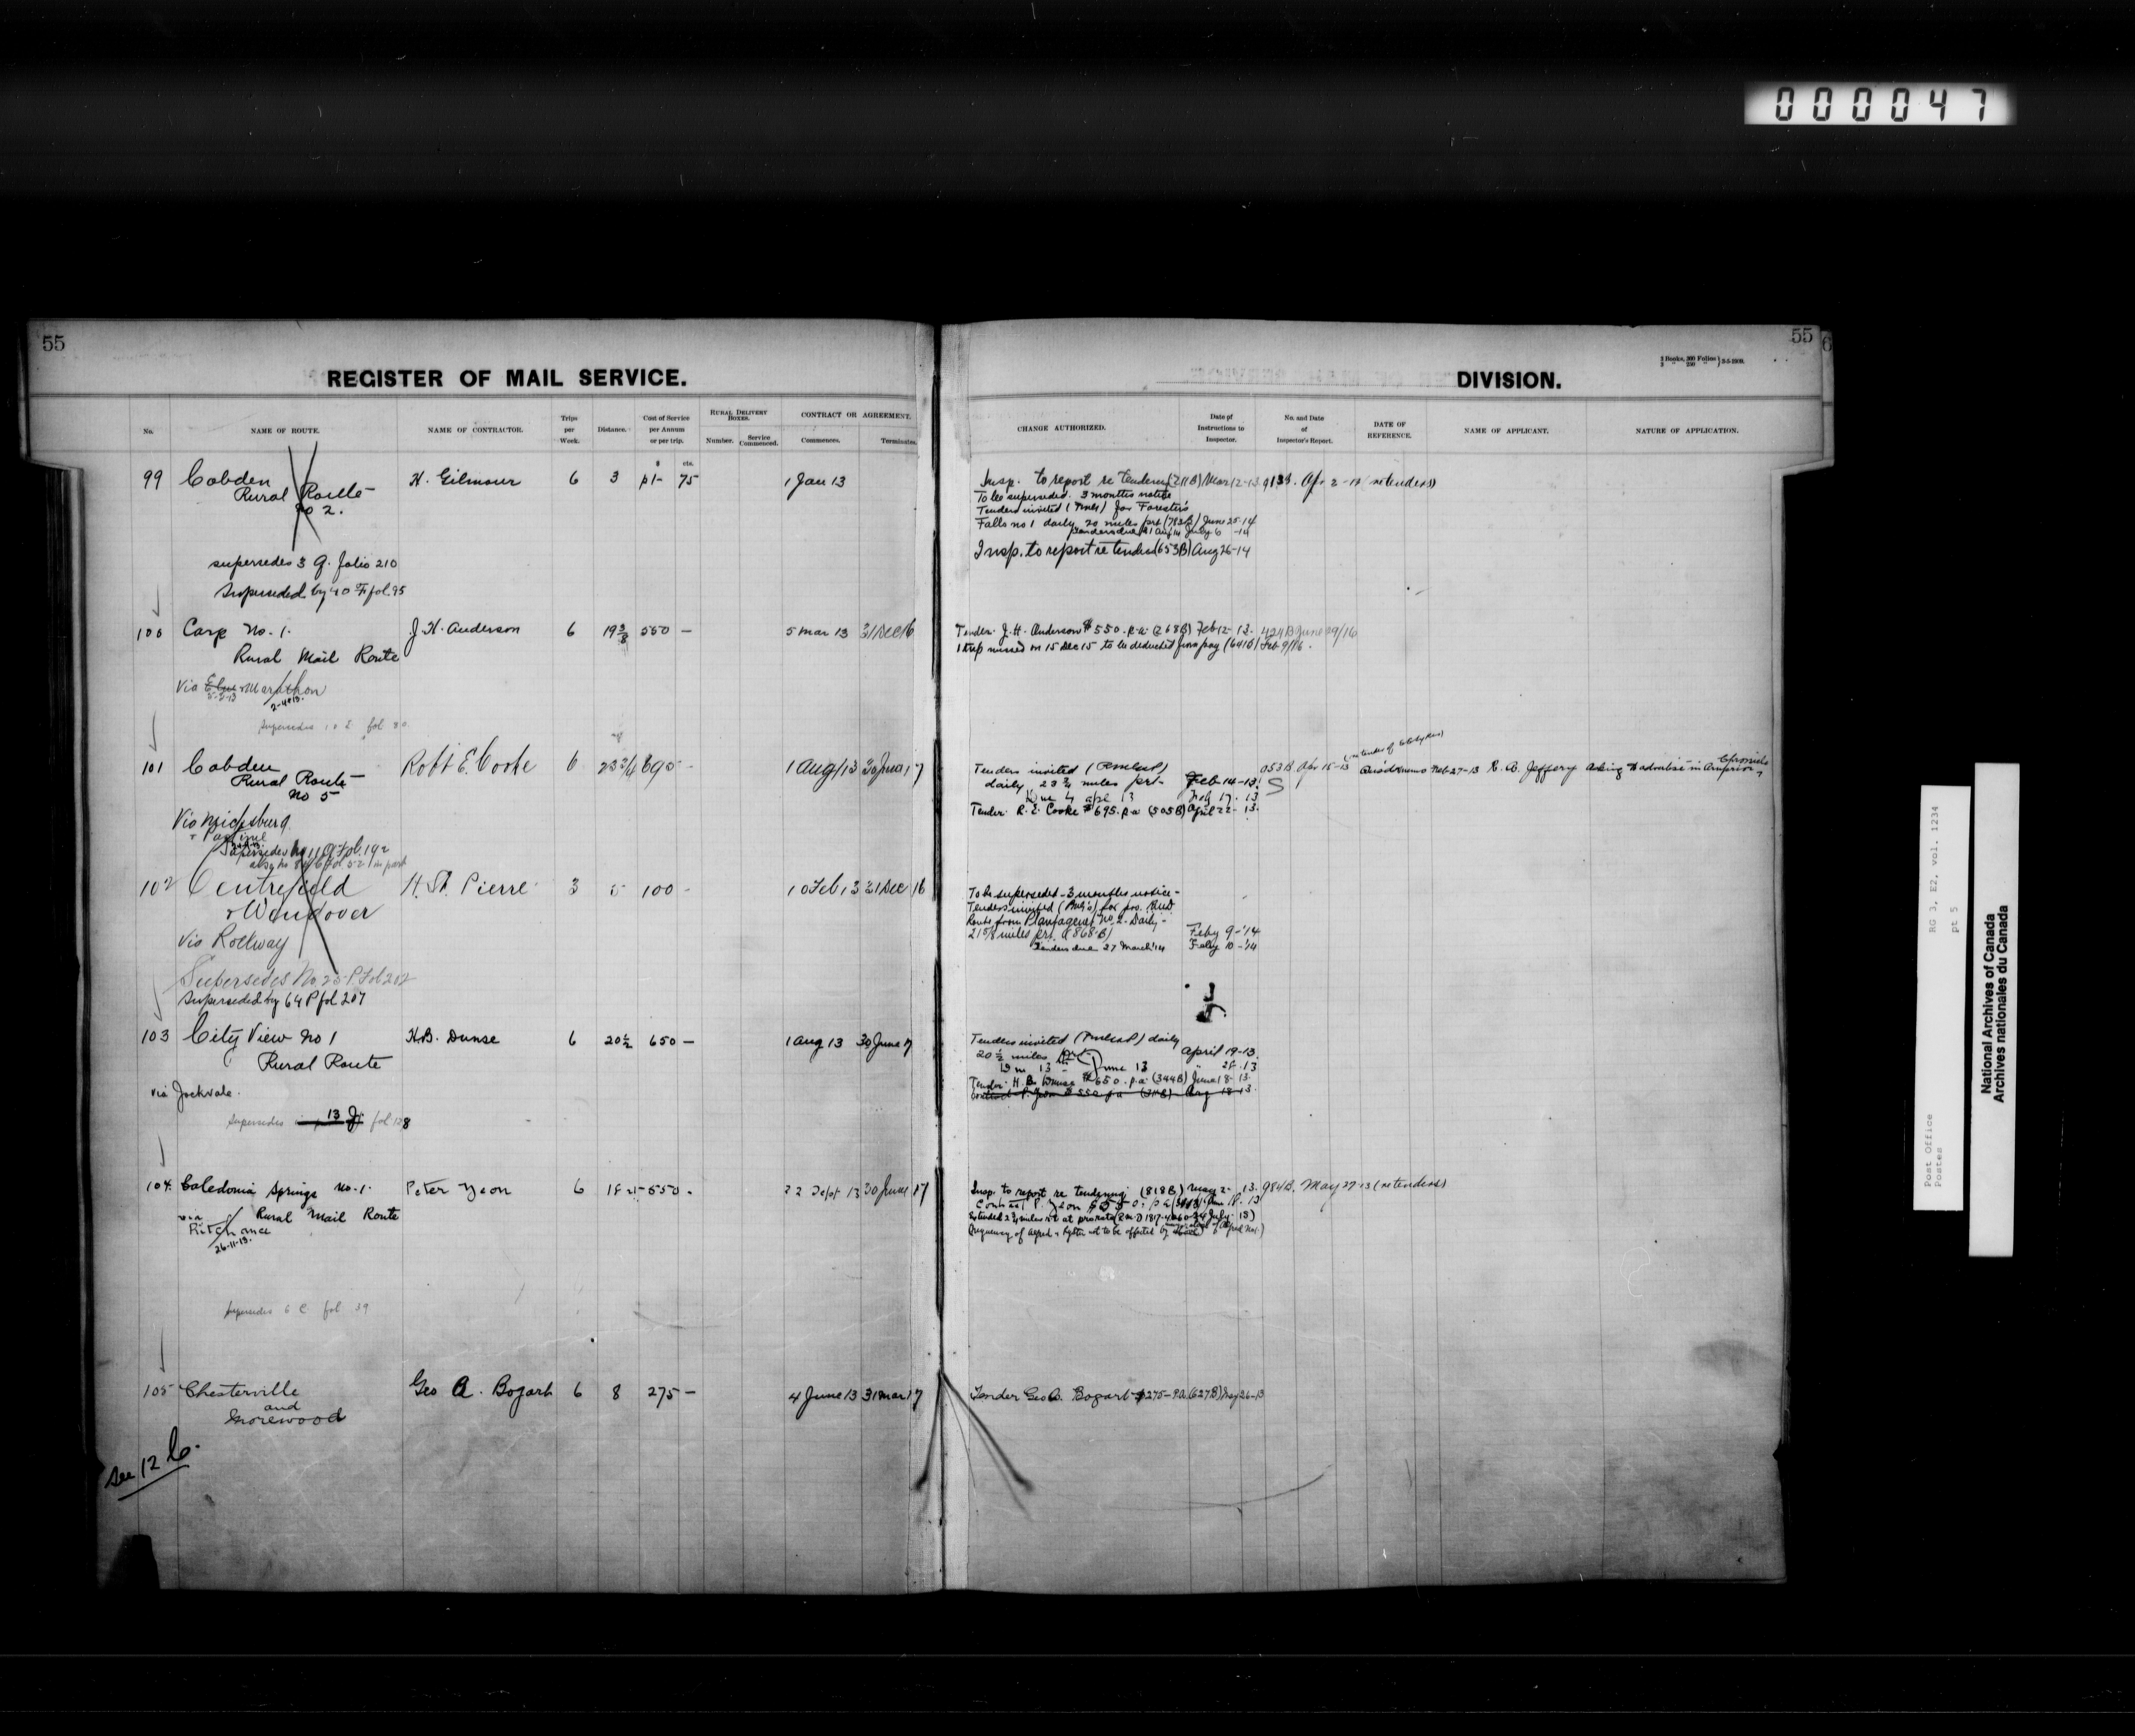 000047
55
REGISTER OF MAIL SERVICE.
No.
NAME OF ROUTE.
NAME OF CONTRACTOR.
Trips per Week.
Distance.
Cost of Service per Annum or per trip.
RURAL DELIVERY BOXES.
Number.
Service Commenced.
CONTRACT OR AGREEMENT.
Commences.
Terminates.
$ cts.
99 Cobden H. Gilmour 6 3 p1- 75 1 Jan 13
Rural Route
No 2.
supersedes 3 G. folio 210
Superseded by 40 F fol. 95
100 Carp No. 1. J. H. Anderson 6 19 3/8 550 – 5 Mar 13 31 Dec 16
Rural Mail Route
Via Marathon
2-4-13.
Supersedes fol 30
101 Cobden Robt E. Cooke 6 23 3/4 695 - 1 Aug 13 30 June 17
Rural Route
No 5
Via Micksburg
102 Centrefield H. St. Pierre 3 5 100 - 10 Feb 13 31 Dec 16
& Wendover
Via Rockway
Supersedes No. 25 P. Fol 202
Superseded by 64 P fol 207
103 City View No 1 H.B. Dunse 6 20 1/2 650 – 1 Aug 13 30 June 17
Rural Route
via Jockvale.
Supersedes 13 J. fol 128
104. Caledonia Springs No. 1. Peter Yeon 6 550. 22 Sept 13 30 June 17
via Rural Mail Route
Ritchance
26-11-13.
Supersedes 6 C fol 39
105 Chesterville Geo A. Bogart 6 8 275 – 4 June 13 31 Mar 17
and
Morewood
See 12 C.
55
6
DIVISION.
2 Books, 300 Folios
CHANGE AUTHORIZED.
Date of Instructions to Inspector.
No. and Date of Inspector's Report.
DATE OF REFERENCE.
NAME OF APPLICANT.
NATURE OF APPLICATION.
Insp. to report re tendering (211B) Mar 12-13 913B. Apr 2-13 (re tenders)
To be superseded. 3 months notice
Tenders invited for Foresters
Falls No 1 daily 20 miles prt (782B) June 25-14
Tenders due 21 Aug 14 July 6 -14
Insp. to report re tenders (653B) Aug 26-14
Tender. J. H. Anderson $550. p.a. (268B) Feb 12-13. 424B June 29/16
1 trip missed on 15 Dec 15 to be deducted from pay (641B) Feb 9/16.
Tenders invited (RMB&P)
daily 23 3/4 miles prt- Feb-14-13.
Feb 17. 13
Tender. R. E. Cooke $695. p.a. (505B) April 22-13.
053B. Apr 15-13 Feb-27-13 R. A. Jeffery Asking to advertise in Arnprior Chronicle
To be superseded – 3 months notice –
Tenders invited for pro. Rural
Route from Plantagenet No. 2 – Daily –
21 5/8 miles prt. (868-B) Feby 9-'14
Tenders due 27 March '14 Feby 10-'14
Tenders invited (RMB&P) daily
20 1/2 miles April 19-13.
June 13 " 28.13
Tender. H. B. Dunse $650. p.a. (344B) June 18-13.
Contract P. Yeon $550 p.a. Aug 18-13
Insp. to report re tendering (818B) May 2-13. 984B. May 27-13 (re tenders)
Contract P. Yeon $550. p.a.
Tender Geo A. Bogart $275– p.a. (627B) May 26-13
RG 3, E2, vol. 1234
pt 5
Post Office
Postes
National Archives of Canada
Archives nationales du Canada